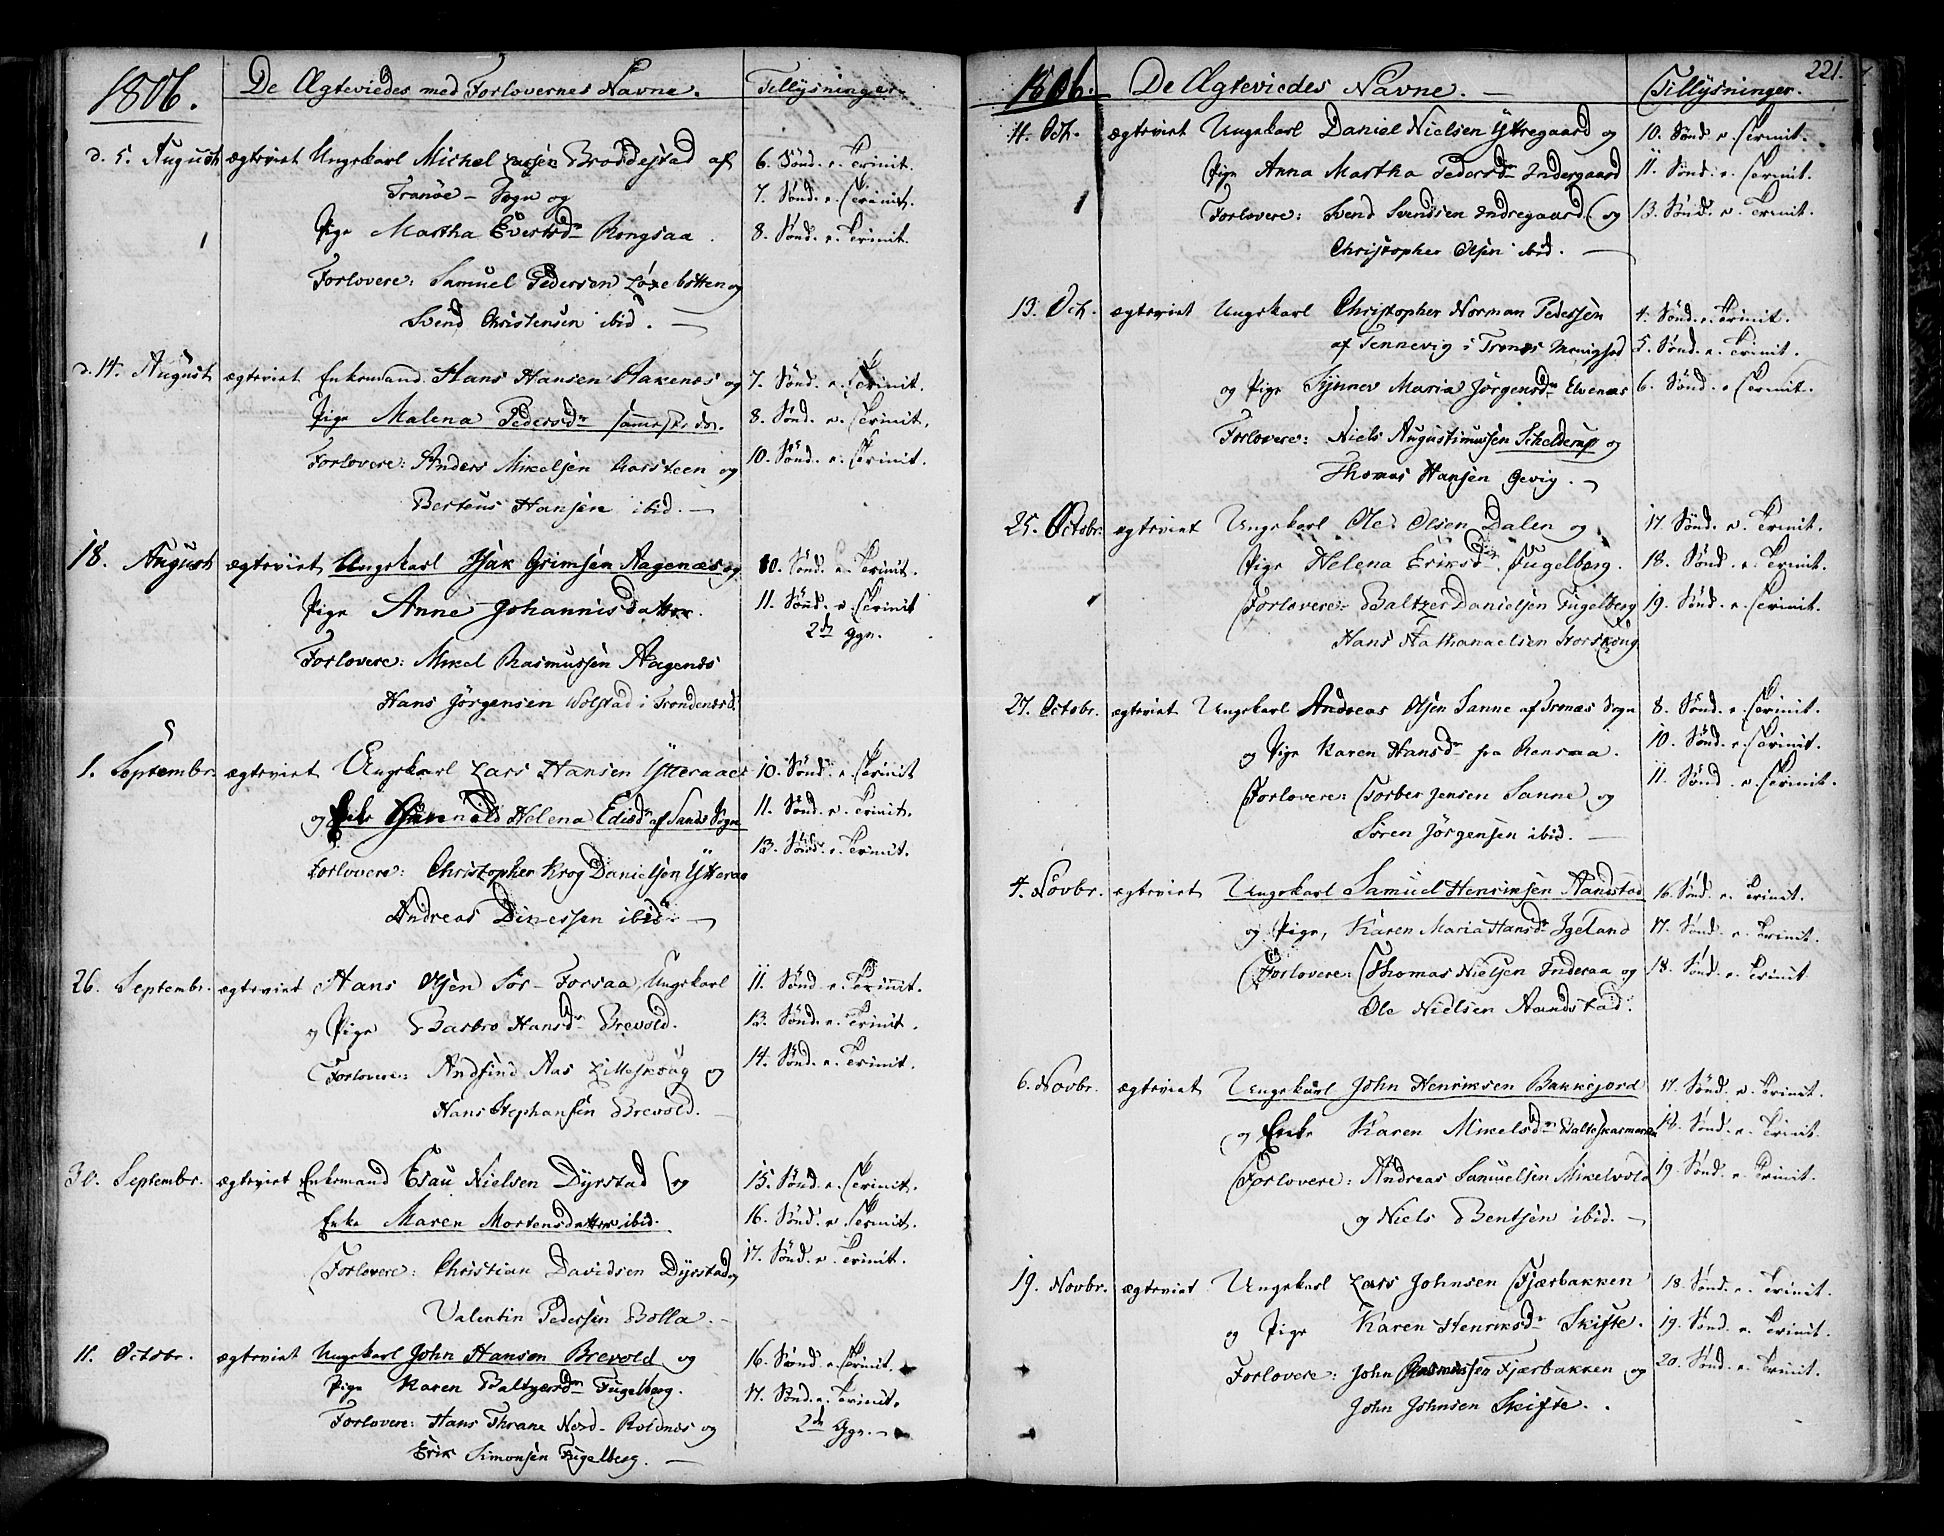 1806. De Ægteviedes med Forlovernes Navne. Tillysninger.
d. 5. August ægteviet Ungekarl Michel Larsen Broddestad af 6. Sønd. e. Trinit.
Tranøe-Sogn og 7. Sønd. e. Trinit.
Pige Martha Evertsd. Rongsaa. 8. Sønd. e. Trinit.
Forlovere: Samuel Pedersen Løxebotten og
Svend Christensen ibid.
d. 14. August ægteviet Enkemand Hans Hansen Aakenæs og 7. Sønd. e. Trinit.
Pige Malena Pedersd. sammesteder. 8. Sønd. e. Trinit.
Forlovere: Anders Mikelsen Carsteen og 10. Sønd. e. Trinit.
Berteus Hansen ibid.
18. August ægteviet Ungekarl Isak Grimsen Aagenæs og 10. Sønd. e. Trinit.
Pige Anne Johannisdatter. 11. Sønd. e. Trinit
2de Ggr.
Forlovere: Mikel Rasmussen Aagenæs
Hans Jörgensen Wolstad i Trondenæsd.
1. Septembr. ægteviet Ungekarl Lars Hansen Ytteraaer 10. Sønd. e. Trinit
og Enke Gunnild Helena Edisd. af Sands Sogn 11. Sønd. e. Trinit.
Forlovere: Christopher Krog Danielsen Ytteraa 13. Sønd. e. Trinit.
Andreas Dinessen ibid.
26. Septembr. ægteviet Hans Olsen Sør-Forsaa, Ungekarl 11. Sønd e. Trinit.
og Pige Barbro Hansd. Brevold. 13. Sønd. e. Trinit.
Forlovere: Andfind Aas Lilleskoug og 14. Sønd. e. Trinit.
Hans Stephansen Brevold.
30. Septembr. ægteviet Enkemand Esau Nielsen Dyrstad og 15. Sønd. e. Trinit.
Enke Maren Mortensdatter ibid. 16. Sønd. e. Trinit.
Forlovere: Christian Davidsen Dyrstad og 17. Sønd. e. Trinit.
Valentin Pedersen Bolla.
11. Octobr. ægteviet Ungekarl John Hansen Brevold og 16. Sønd. e. Trinit.
Pige Karen Baltzersd. Fugelberg. 17. Sønd. e. Trinit.
Forlovere: Hans Thrane Nord-Roldnæs og 2de Ggr.
Erik Simonsen Fugelberg.
221.
1806. De Ægteviedes Navne. Tillysninger.
11. Oct. ægteviet Ungekarl Daniel Nielsen Yttregaard og 10. Sønd. e. Trinit.
Pige Anna Martha Pedersd. Indergaard 11. Sønd. e. Trinit.
Forlovere: Svend Svendsen Indregaard og 13. Sønd. e. Trinit.
Christopher Olsen ibid.
13. Oct. ægteviet Ungekarl Christopher Norman Pedersen 4. Sønd. e. Trinit.
af Tennevig i Tronæs Menighed 5. Sønd. e. Trinit.
og Pige Synnev Maria Jørgensd. Elvenæs 6. Sønd. e. Trinit.
Forlovere: Niels Augustinussen Schelderup og
Thomas Hansen Gevig.
25. Octobr. ægteviet Ungekarl Ole Olsen Dalen og 17. Sønd. e. Trinit.
Pige Helena Eriksd. Fugelberg. 18. Sønd. e. Trinit.
Forlovere: Baltzer Danielsen Fugelberg 19. Sønd. e. Trinit.
Hans Nathanaelsen Storskoug
27. Octobr. ægteviet Ungekarl Andreas Olsen Sanne af Tronæs Sogn 8. Sønd. e. Trinit.
og Pige Karen Hansd. fra Rensaa. 10. Sønd. e. Trinit.
Forlovere: Torber Jensen Sanne og 11. Sønd. e. Trinit.
Søren Jørgensen ibid.
4. Novbr. ægteviet Ungekarl Samuel Henriksen Aandstad 16. Sønd. e. Trinit.
og Pige, Karen Maria Hansd. Igeland 17. Sønd. e. Trinit.
Forlovere: Thomas Nielsen Inderaa og 18. Sønd. e. Trinit
Ole Nielsen Aandstad.
6. Novbr. ægteviet Ungekarl John Henriksen Bakkejord 17. Sønd. e. Trinit.
og Enke Karen Mikelsd. 18. Sønd. e. Trinit.
Forlovere: Andreas Samuelsen Mikelvold 19. Sønd. e. Trinit.
og Niels Bentsen ibid.
19. Novbr. ægteviet Ungekarl Lars Johnsen Fjærbakken 18. Sønd. e. Trinit.
og Pige Karen Henriksd. Skifte. 19. Sønd. e. Trinit.
Forlovere: John Rasmussen Fjærbakken og 20. Sønd. e. Trinit.
John Johnsen Skifte.